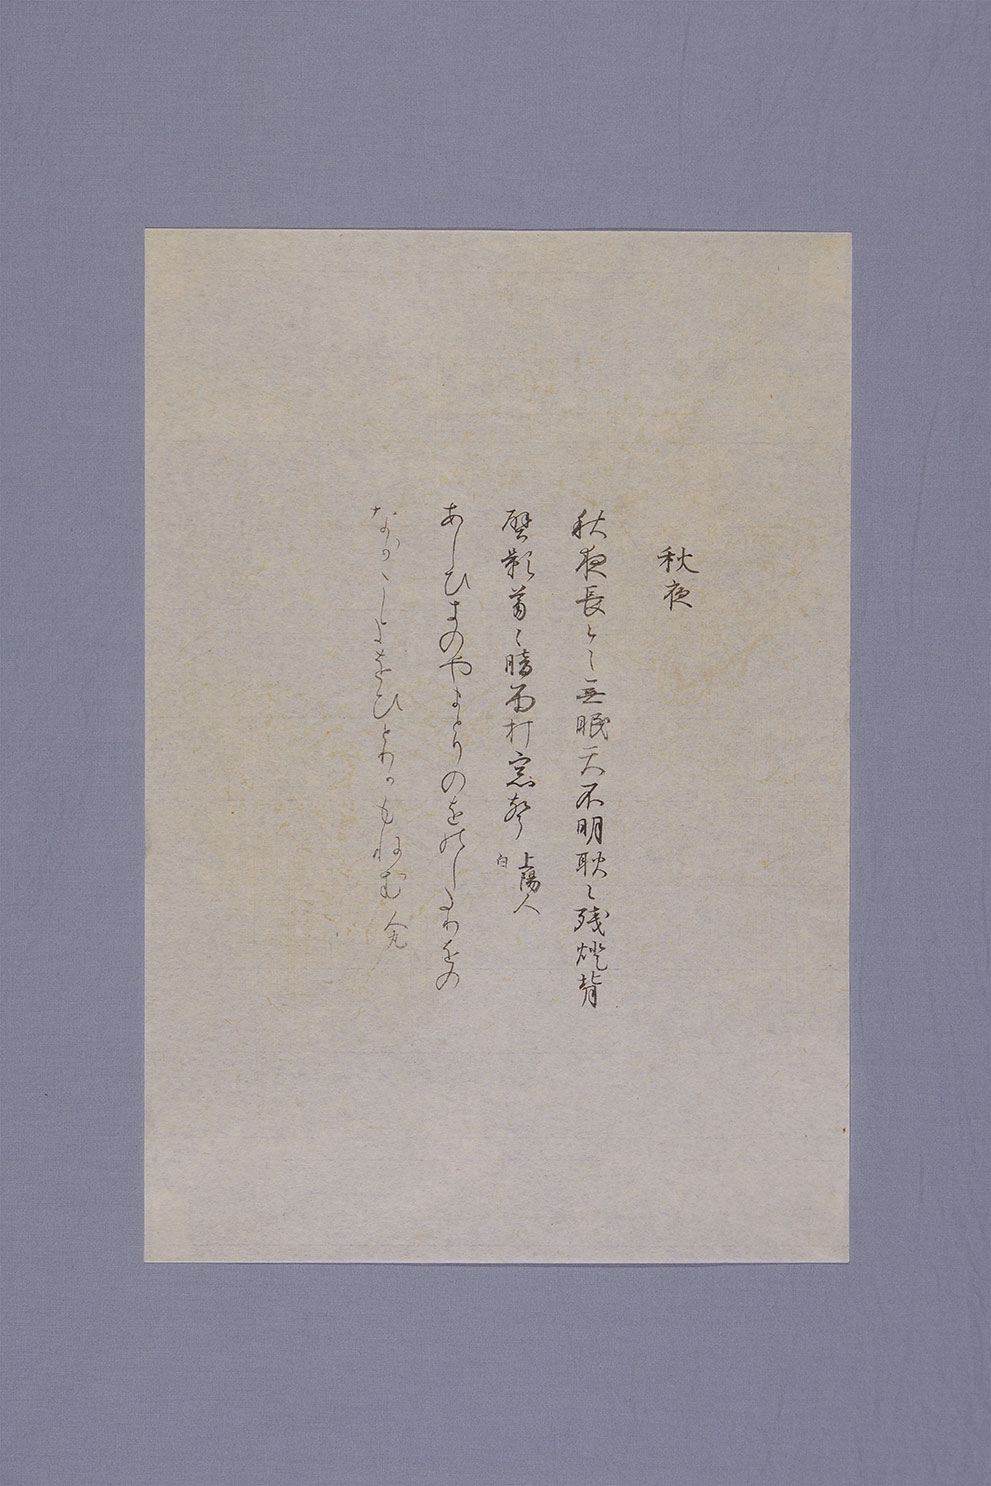 秋夜
秋夜長々無眠天不明耿々残燈背
壁影蕭々暗雨打窓声 上陽人
白
あしひきのやまとりのをのしたりをの
なか〱しよをひとりかもねむ 人丸